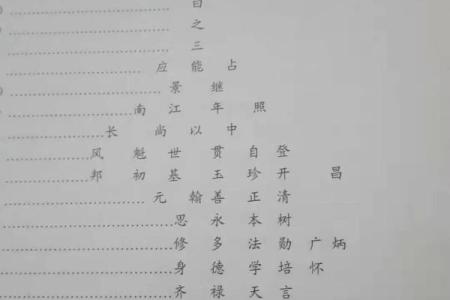 百
之
三
应 能 占
景 继
南 江 年 照
长 尚 以 中
风 魁 世 贯 自 登
邦 初 基 玉 珍 开 昌
元 翰 善 正 清
思 永 本 树
修 多 法 勋 广 炳
身 德 学 培 怀
齐 禄 天 言